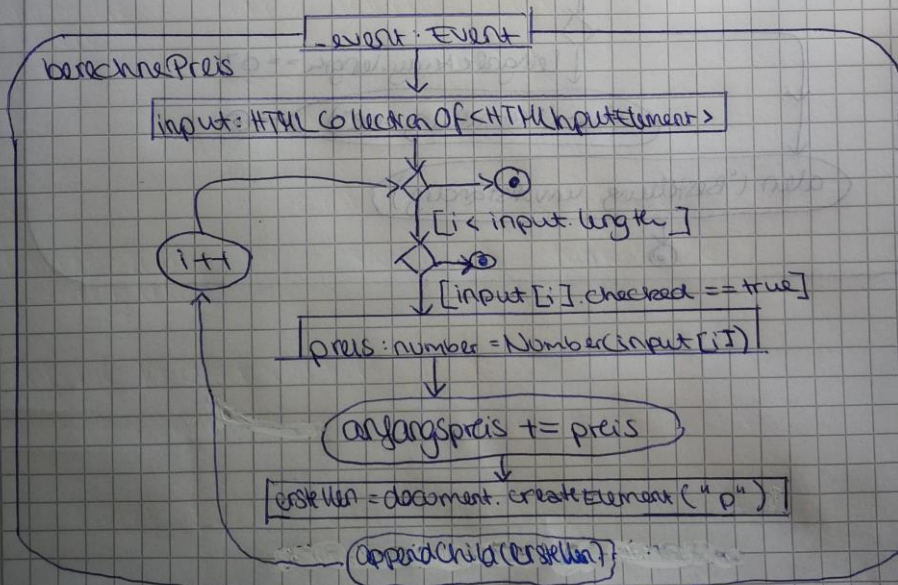 _event: Event
berechnePreis
input: HTMLCollectionOf<HTMLInputElement>
[i < input.length]
i++
[input[i].checked == true]
preis: number = Number(input[i])
anfangspreis += preis
erstellen = document.createElement("p")
appendChild(erstellen)